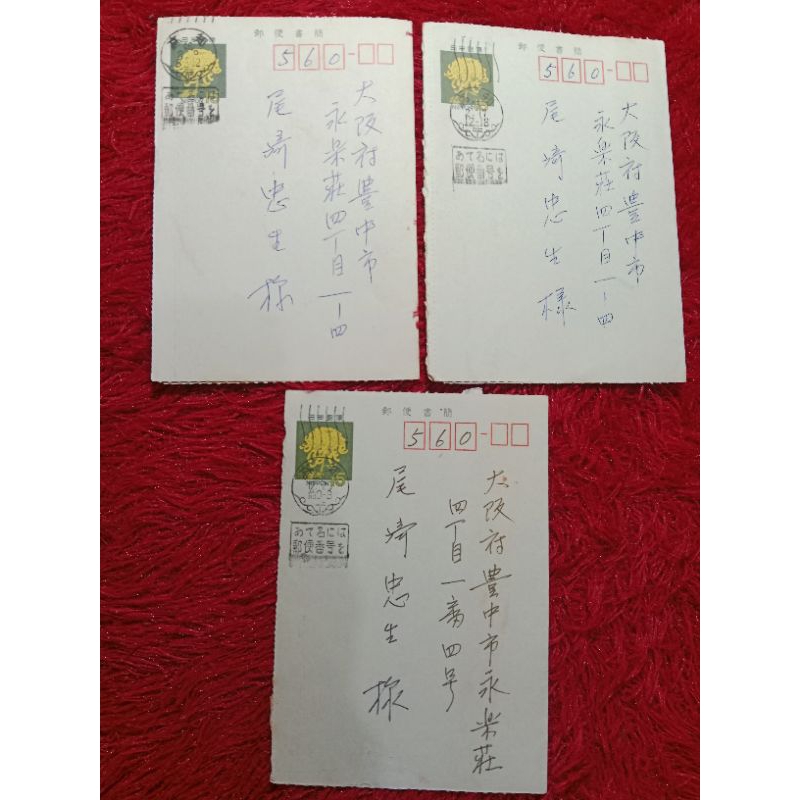 郵便書簡
560
大阪府豊中市
永楽荘四丁目一ー四
尾崎忠生様
郵便書簡
560
大阪府豊中市
永楽荘四丁目一ー四
尾崎忠生様
あて名には
郵便番号を
郵便書簡
560
大阪府豊中市永楽荘
四丁目一番四号
尾崎忠生様
あて名には
郵便番号を